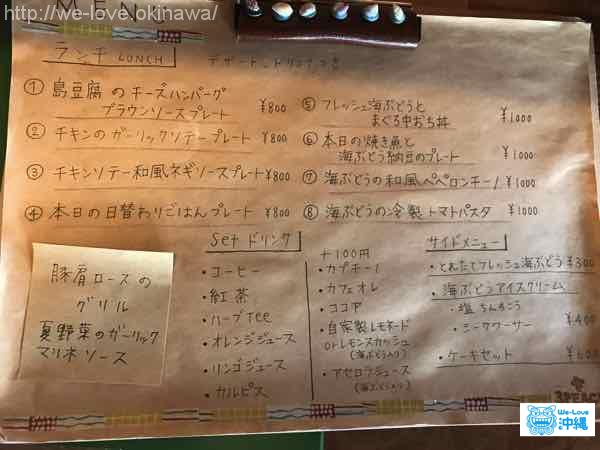 http://we-love.okinawa/
MEN
ランチ LUNCH
デザート、ドリンクつき
① 島豆腐のチーズハンバーグ
ブラウンソースプレート ¥800
② チキンのガーリックソテープレート ¥800
③ チキンソテー和風ネギソースプレート ¥800
④ 本日の日替わりごはんプレート ¥800
⑤ フレッシュ海ぶどうと
まぐろ中おち丼 ¥1000
⑥ 本日の焼き魚と
海ぶどう納豆のプレート ¥1000
⑦ 海ぶどうの和風ペペロンチーノ ¥1000
⑧ 海ぶどうの冷製トマトパスタ ¥1000
豚肩ロースの
グリル
夏野菜のガーリック
マリネソース
Set ドリンク
・コーヒー
・紅茶
・ハーブTee
・オレンジジュース
・リンゴジュース
・カルピス
+100円
・カプチーノ
・カフェオレ
・ココア
・自家製レモネード
orレモンスカッシュ
(海ぶどう入り)
・アセロラジュース
(海ぶどう入り)
サイドメニュー
・とれたてフレッシュ海ぶどう ¥300
・海ぶどうアイスクリーム
・塩ちんすこう
・シークワーサー ¥400
・ケーキセット ¥600
We-Love
沖縄